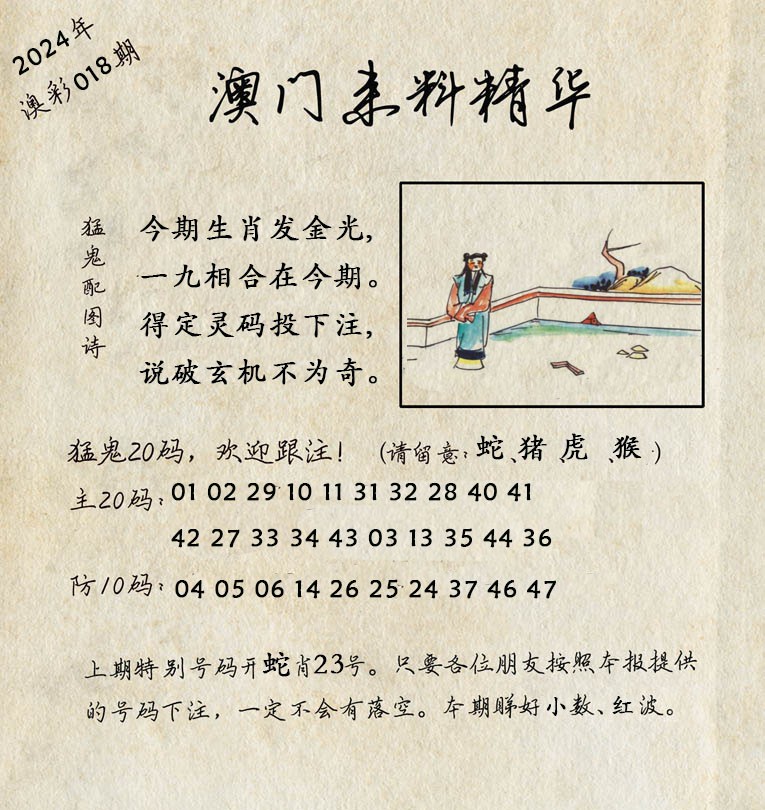 2024年
澳彩018期
澳门来料精华
猛鬼配图诗
今期生肖发金光,
一九相合在今期。
得定灵码投下注,
说破玄机不为奇。
猛鬼20码，欢迎跟注！（请留意：蛇、猪、虎、猴、）
主20码：01 02 29 10 11 31 32 28 40 41
42 27 33 34 43 03 13 35 44 36
防10码：04 05 06 14 26 25 24 37 46 47
上期特别号码开蛇肖23号。只要各位朋友按照本报提供
的号码下注，一定不会有落空。本期睇好小数、红波。